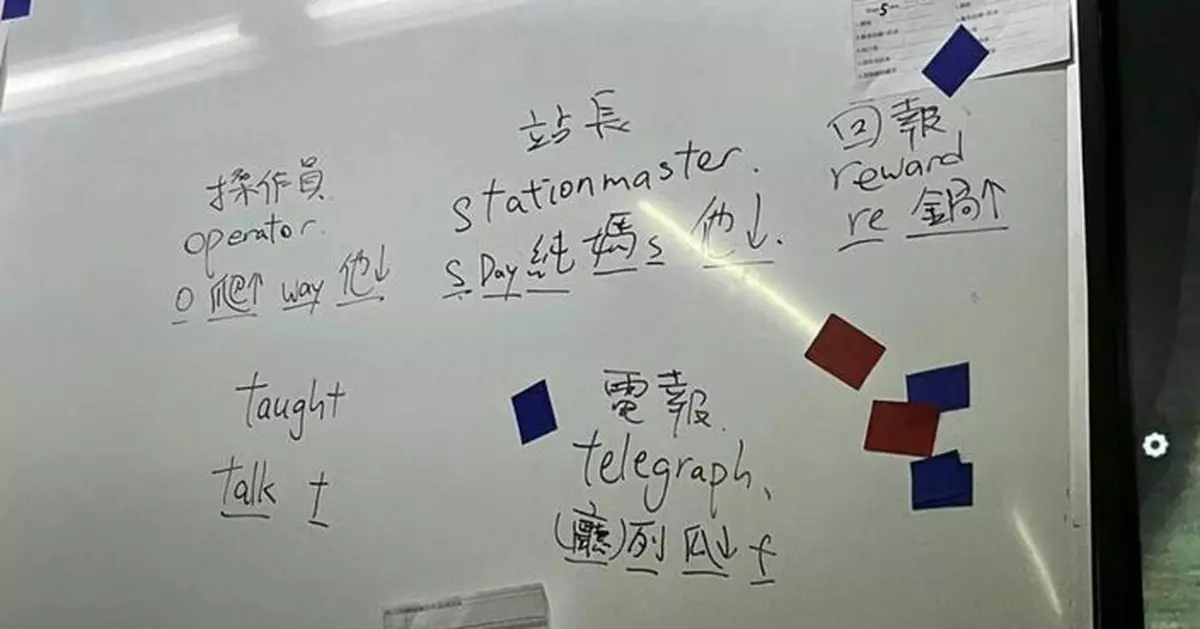 操作員
operator.
o 爬↑ way 他↓
站長
stationmaster.
s Day 純 媽 s 他↓.
回報
reward
re 鍋↑
taught
talk t
電報
telegraph、
(廳)列 瓜↓ f
5